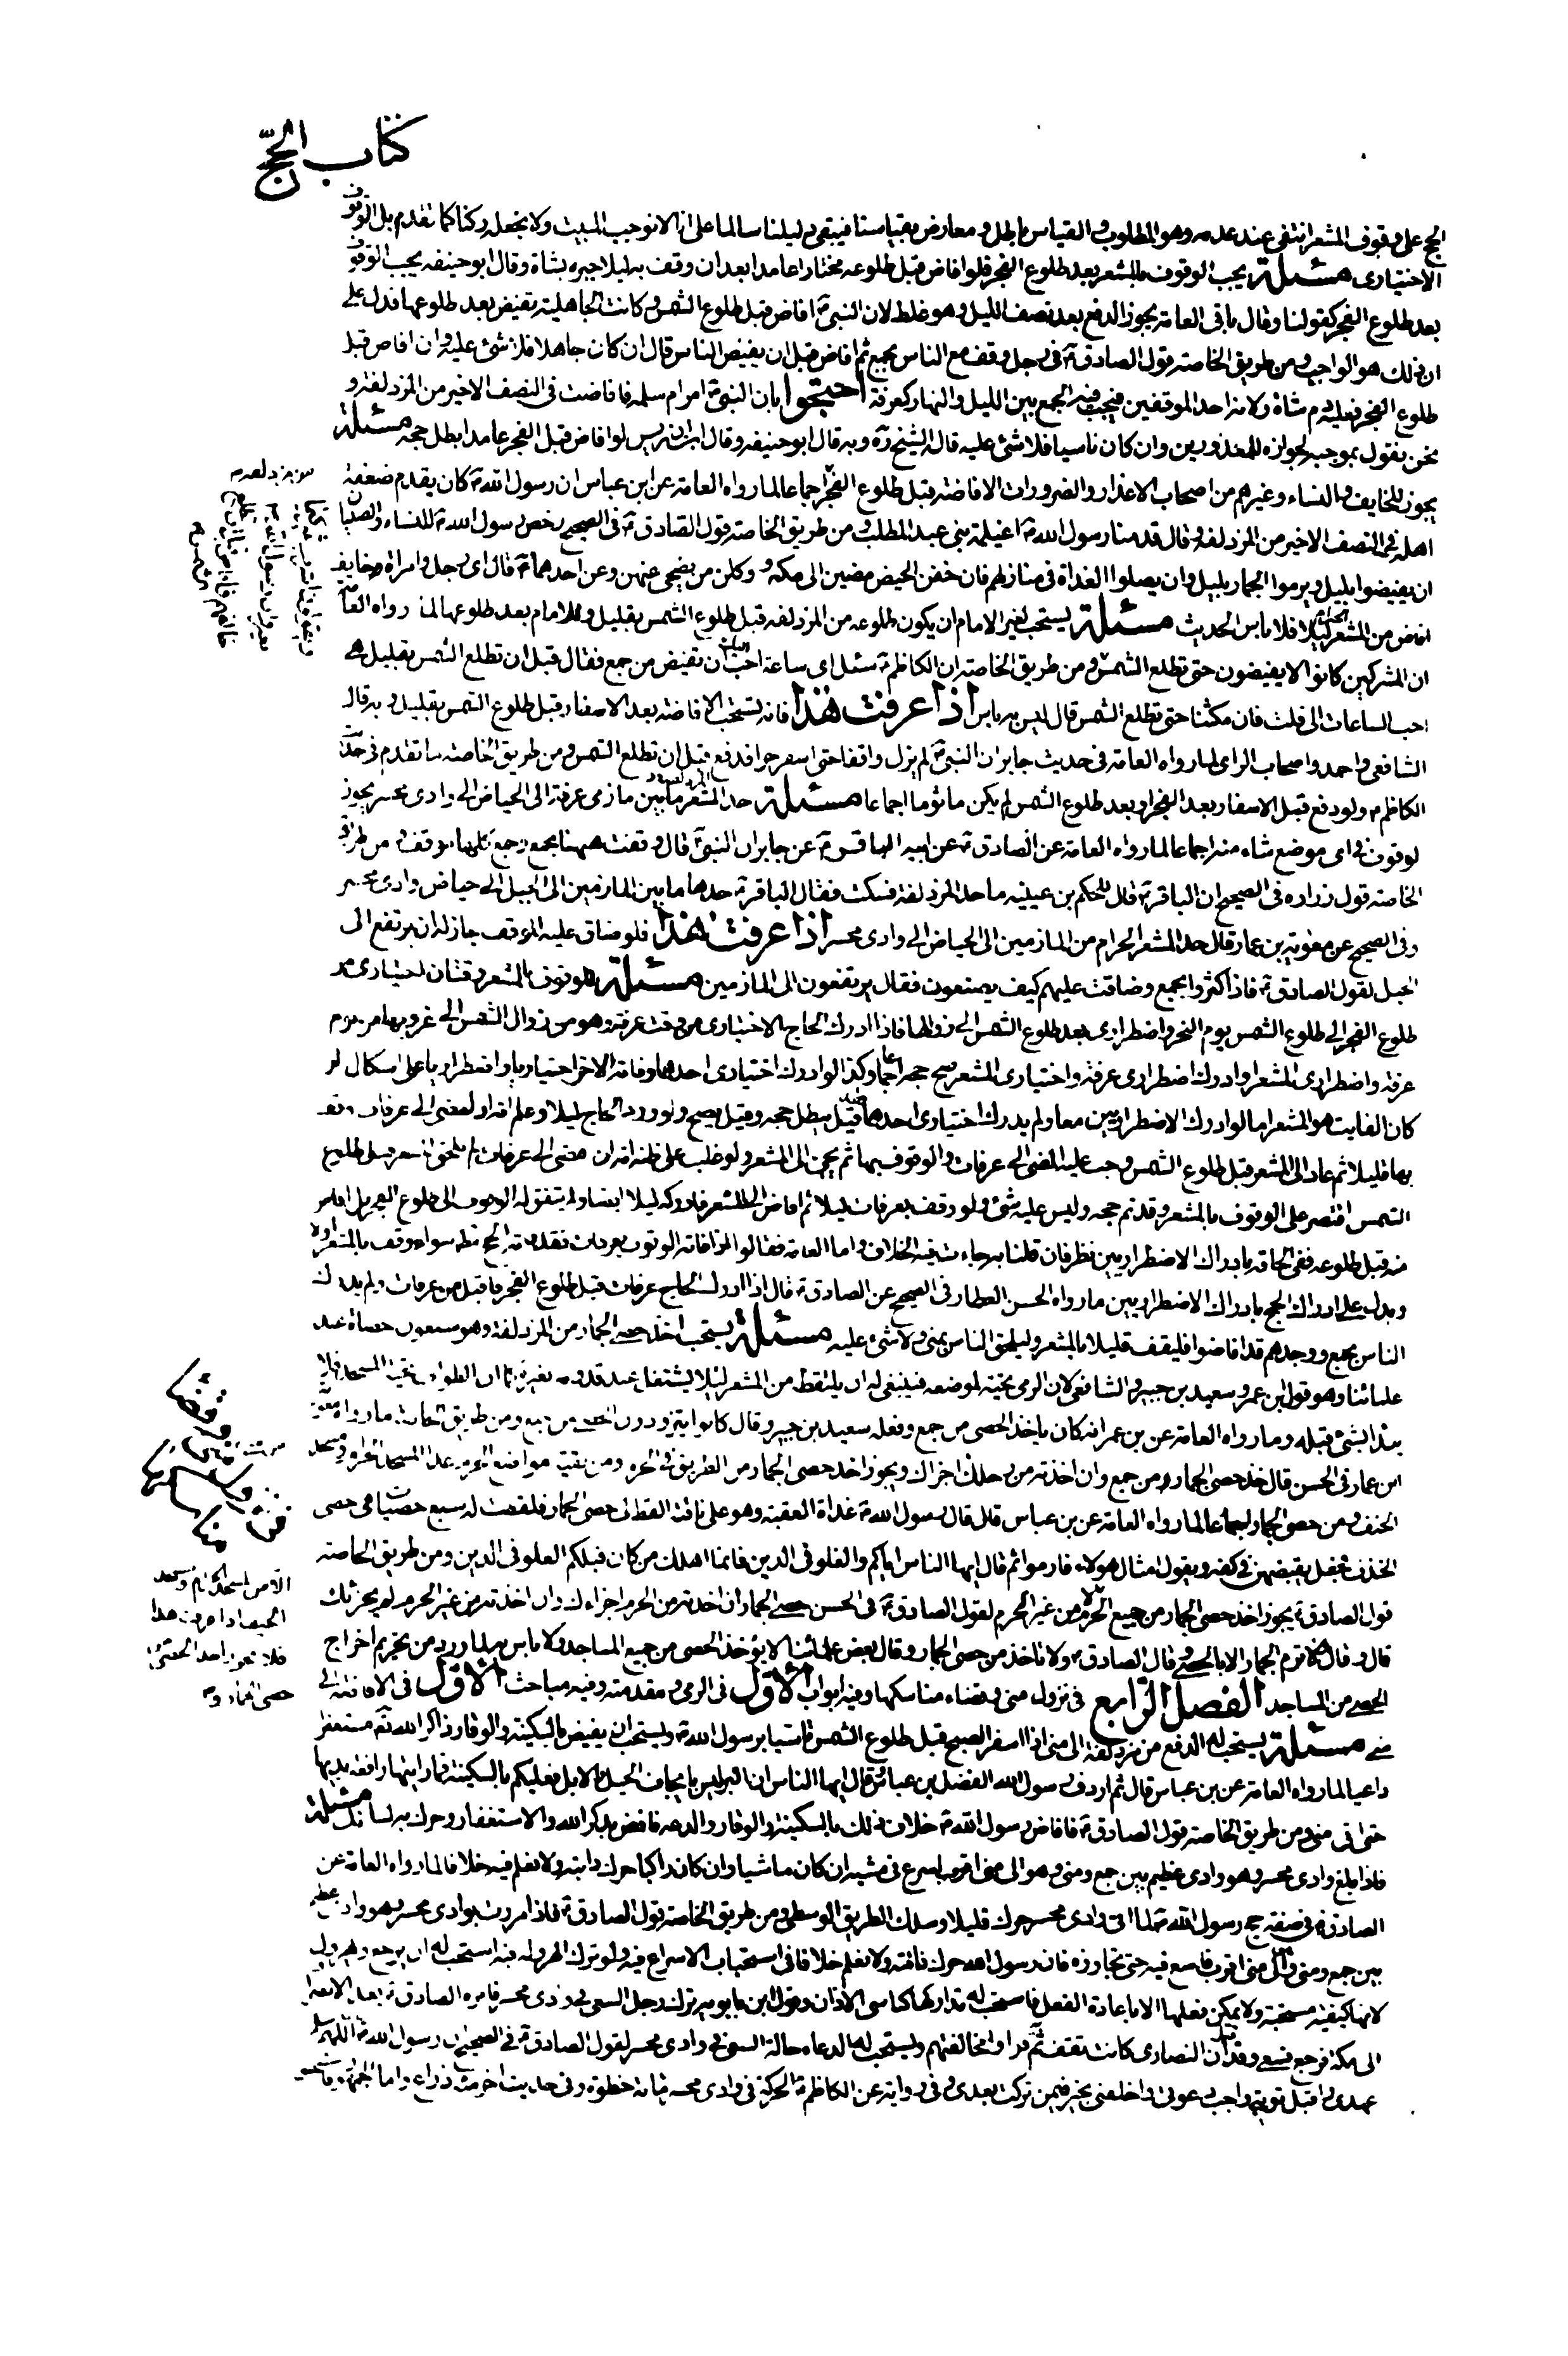 كتاب الحج
الحج على وقوف المشعر انتفى عند عدمه وهو المطلوب والقياس باطل ومعارض بقياسنا فيبقى دليلنا سالما على انا لا نوجب المبيت ولا نجعله ركنا كما تقدم بل الوقوف
الاختيارى مسئلة يجب الوقوف بالمشعر بعد طلوع الفجر فلو افاض قبل طلوعه مختارا عامدا بعد ان وقف به ليلا جبره بشاة وقال ابو حنيفه يجب الوقوف
بعد طلوع الفجر كقولنا وقال باقى العامة يجوز الدفع بعد نصف الليل وهو غلط لان النبى ص افاض قبل طلوع الشمس وكانت الجاهلية تفيض بعد طلوعها فدل على
ان ذلك هو الواجب ومن طريق الخاصة قول الصادق ع فى رجل وقف مع الناس بجمع ثم افاض قبل ان يفيض الناس قال ان كان جاهلا فلا شئ عليه وان افاض قبل
طلوع الفجر فعليه دم شاة ولانه احد الموقفين فيجب فيه الجمع بين الليل والنهار كعرفة احتجوا بان النبى ص امر ام سلمه فافاضت فى النصف الاخير من المزدلفة و
نحن نقول بموجبه لجوازه للمعذورين وان كان ناسيا فلا شئ عليه قاله الشيخ ره وبه قال ابو حنيفه وقال ابن ادريس لو افاض قبل الفجر عامدا بطل حجه مسئلة
يجوز للخايف والنساء وغيرهم من اصحاب الاعذار والضرورات الافاضة قبل طلوع الفجر اجماعا لما رواه العامة عن ابن عباس ان رسول الله ص كان يقدم ضعفة
اهله فى النصف الاخير من المزدلفة وقال قدمنا رسول الله ص اغيلمة بنى عبد المطلب ومن طريق الخاصة قول الصادق ع فى الصحيح رخص رسول الله ص للنساء والصبيان
ان يفيضوا بليل ويرموا الجمار بليل وان يصلوا الغداة فى منازلهم فان خفن الحيض مضين الى مكه ووكلن من يضحى عنهن وعن احدهما ع قال اى رجل وامراة وخايف
افاض من المشعر الحرام ليلا فلا باس الحديث مسئلة يستحب لغير الامام ان يكون طلوعه من المزدلفه قبل طلوع الشمس بقليل وللامام بعد طلوعها لما رواه العامة
ان المشركين كانوا لا يفيضون حتى تطلع الشمس ومن طريق الخاصة ان الكاظم ع سئل اى ساعة احب اليك ان تفيض من جمع فقال قبل ان تطلع الشمس بقليل هى
احب الساعات الى قلت فان مكثنا حتى تطلع الشمس قال ليس به باس اذا عرفت هذا فانه تستحب الافاضة بعد الاسفار قبل طلوع الشمس بقليل وبه قال
الشافعى واحمد واصحاب الراى لما رواه العامة فى حديث جابر ان النبى ص لم يزل واقفا حتى اسفر جدا فدفع قبل ان تطلع الشمس ومن طريق الخاصة ما تقدم فى حديث
الكاظم ع ولو دفع قبل الاسفار بعد الفجر او بعد طلوع الشمس لم يكن ماثوما اجماعا مسئلة حد المشعر ما بين مازمى عرفة الى الحياض الى وادى محسر يجوز
الوقوف فى اى موضع شاء منه اجماعا لما رواه العامة عن الصادق ع عن ابيه الباقر ع عن جابر ان النبى ص قال وقفت ههنا بجمع وجمع كلها موقف ومن طريق
الخاصة قول زراره فى الصحيح ان الباقر ع قال للحكم بن عيينه ما حد المزدلفة فسكت فقال الباقر ع حدها ما بين المازمين الى الجبل الى حياض وادى محسر
وفى الصحيح عن معوية بن عمار قال حد المشعر الحرام من المازمين الى الحياض الى وادى محسر اذا عرفت هذا فلو ضاق عليه الموقف جاز له ان يرتفع الى
الجبل لقول الصادق ع فاذا كثروا بجمع وضاقت عليهم كيف يصنعون فقال يرتفعون الى المازمين مسئلة للوقوف بالمشعر وقتان اختيارى من
طلوع الفجر الى طلوع الشمس يوم النحر واضطرارى بعد طلوع الشمس الى زوالها فاذا ادرك الحاج الاختيارى من وقت عرفة وهو من زوال الشمس الى غروبها من يوم
عرفة واضطرارى المشعر او ادرك اضطرارى عرفة واختيارى المشعر صح حجه اجماعا وكذا لو ادرك اختيارى احدهما وفاته الاخر اختياريا واضطراريا على اشكال لو
كان الفايت هو المشعر اما لو ادرك الاضطراريين معا ولم يدرك اختيارى احدهما فقد قيل يبطل حجه وقيل يصح ولو ورد الحاج ليلا وعلم انه اذا مضى الى عرفات وقف
بها قليلا ثم عاد الى المشعر قبل طلوع الشمس وجب عليه المضى الى عرفات والوقوف بها ثم يجئ الى المشعر ولو غلب على ظنه انه ان مضى الى عرفات لم يلحق المشعر قبل طلوع
الشمس اقتصر على الوقوف بالمشعر وقد تم حجه وليس عليه شئ ولو وقف بعرفات ليلا ثم افاض الى المشعر فادركه ليلا ايضا ولم يتفق له الوقوف الى طلوع الفجر بل افاض
منه قبل طلوعه ففى الحاقه بادراك الاضطراريين نظر فان قلنا به جاءت فيه الخلاف واما العامة فقالوا اذا فاته الوقوف بعرفات فقد فاته الحج مطلقا سواء وقف بالمشعر او لا
ويدل على ادراك الحج بادراك الاضطراريين ما رواه الحسن العطار فى الصحيح عن الصادق ع قال اذا ادرك الحاج عرفات قبل طلوع الفجر فاقبل من عرفات ولم يدرك
الناس بجمع ووجدهم قد افاضوا فليقف قليلا بالمشعر وليلحق الناس بمنى ولا شئ عليه مسئلة يستحب اخذ حصى الجمار من المزدلفة وهو سبعون حصاة عند
علمائنا وهو قول ابن عمر وسعيد بن جبير والشافعى لان الرمى تحية لموضعه فينبغى له ان يلتقط من المشعر لئلا يشتغل عند قدومه بغيره كما ان الطواف تحية المسجد فلا
يبدا بشئ قبله وما رواه العامة عن بن عمر انه كان ياخذ الحصى من جمع وفعله سعيد بن جبير وقال كانوا يتزودون الحصى من جمع ومن طريق الخاصة ما رواه معوية
ابن عمار فى الحسن قال خذ حصى الجمار من جمع وان اخذته من رحلك اجزاك ويجوز اخذ حصى الجمار من الطريق فى الحرم ومن بقية مواضع الحرم عدا المسجد الحرام ومسجد
الخيف ومن حصى الجمار اجماعا لما رواه العامة عن بن عباس قال قال رسول الله ص غداة العقبة وهو على ناقته القط لى حصى الجمار فلقطت له سبع حصيات هى حصى
الخذف فجعل يقبضهن فى كفه ويقول امثال هولاء فارموا ثم قال ايها الناس اياكم والغلو فى الدين فانما اهلك من كان قبلكم الغلو فى الدين ومن طريق الخاصة
قول الصادق ع يجوز اخذ حصى الجمار من جميع الحرم لا من غير الحرم لقول الصادق ع فى الحسن حصى الجمار ان اخذته من الحرم اجزاءك وان اخذته من غير الحرم لم يجزئك
قال وقال لا ترم الجمار الا بالحصى وقال الصادق ع ولا تاخذ من حصى الجمار وقال بعض علمائنا لا يؤخذ الحصى من جميع المساجد ولا باس به لما ورد من تحريم اخراج
الحصى من المساجد الفصل الرابع فى نزول منى وقضاء مناسكها وفيه ابواب الاول فى الرمى ومقدمته وفيه مباحث الاول فى الافاضة الى
منى مسئلة يستحب له الدفع من مزدلفة الى منى اذا اسفر الصبح قبل طلوع الشمس تاسيا برسول الله ص ويستحب ان يفيض بالسكينة والوقار ذاكرا لله تعالى مستغفرا
داعيا لما رواه العامة عن بن عباس قال ثم اردف رسول الله الفضل بن عباس وقال ايها الناس ان البر ليس بايجاف الخيل والابل فعليكم بالسكينة فما رايتها رافعة يديها
حتى اتى منى ومن طريق الخاصة قول الصادق ع فافاض رسول الله ص خلاف ذلك بالسكينة والوقار والدعه فافض بذكر الله والاستغفار وحرك به لسانك مسئلة
فاذا بلغ وادى محسر وهو وادى عظيم بين جمع ومنى وهو الى منى اقرب اسرع فى مشيه ان كان ماشيا وان كان راكبا حرك دابته ولا نعلم فيه خلافا لما رواه العامة عن
الصادق ع فى صفة حج رسول الله ص لما اتى وادى محسر حرك قليلا وسلك الطريق الوسطى ومن طريق الخاصة قول الصادق ع فاذا مررت بوادى محسر وهو واد عظيم
بين جمع ومنى وهو الى منى اقرب فاسع فيه حتى تجاوزه فان رسول الله حرك ناقته ولا نعلم خلافا فى استحباب الاسراع فيه ولو ترك الهرولة فيه استحب له ان يرجع ويهرول
لانها كيفية مستحبة ولا يمكن فعلها الا باعادة الفعل فاستحب له تداركها كناسى الاذان وقول ابن بابويه ترك رجل السعى فى وادى محسر فامره الصادق ع بعد الانصراف
الى مكة فرجع فسعى وقيل ان النصارى كانت تقف ثم فراوا مخالفتهم ويستحب له الدعاء حالة السعى فى وادى محسر لقول الصادق ع فى الصحيح ان رسول الله ص قال اللهم سلم
عهدى واقبل توبتى واجب دعوتى واخلفنى بخير فيمن تركت بعدى وفى رواية عن الكاظم ع الحركة فى وادى محسر مائة خطوة وفى حديث اخر مائة ذراع واما الجمهور